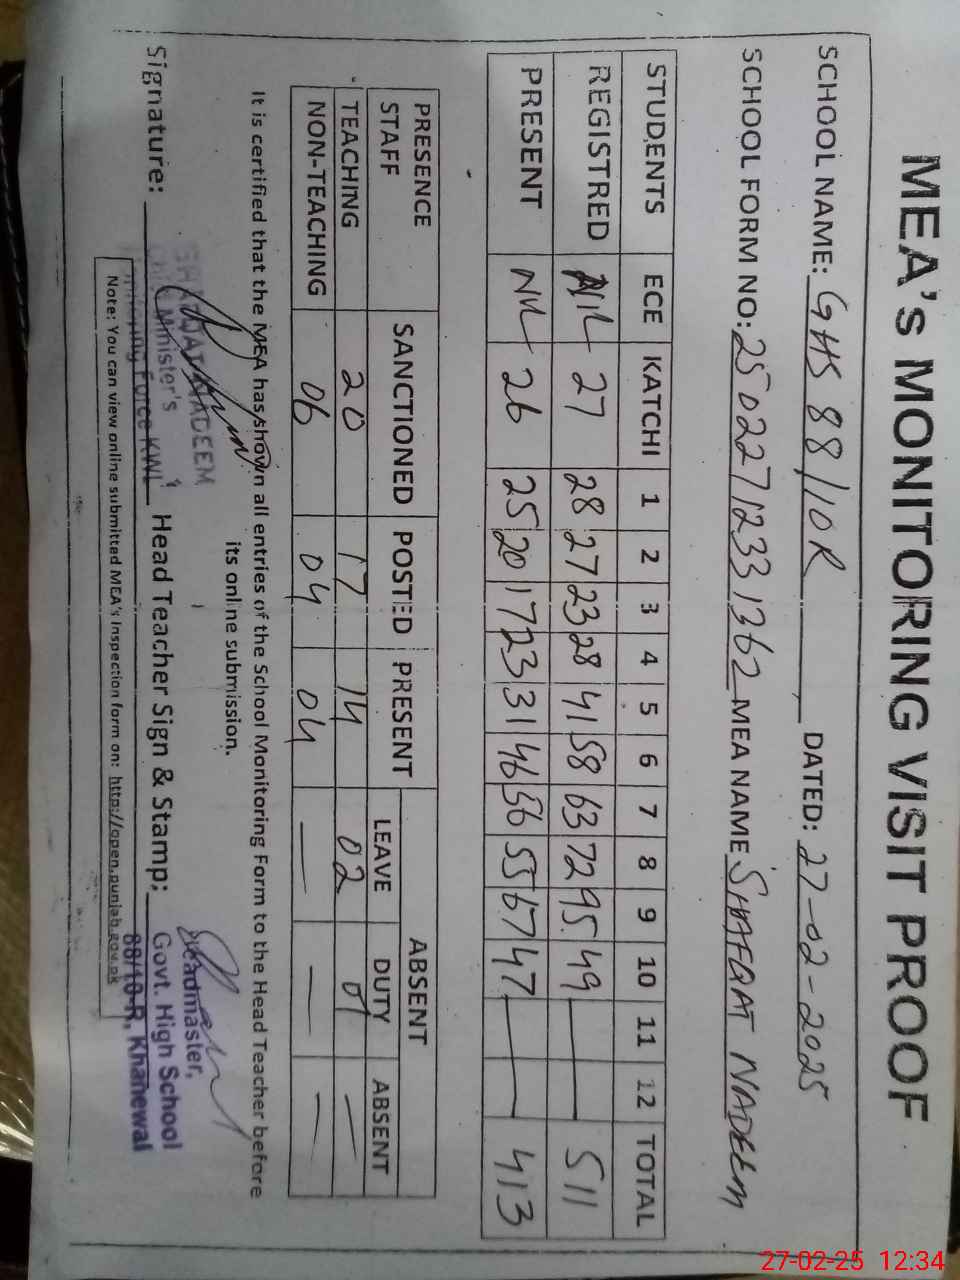 MEA's MONITORING VISIT PROOF
SCHOOL NAME: GHS 88/10R DATED: 27-02-2025
SCHOOL FORM NO: 25022712331362 MEA NAME SHAFQAT NADEEM
STUDENTS ECE KATCHI 1 2 3 4 5 6 7 8 9 10 11 12 TOTAL
REGISTRED NIL 27 28 27 23 28 41 58 63 72 95 49 — 511
PRESENT NIL 26 25 20 17 23 31 46 56 55 67 47 — 413
PRESENCE STAFF SANCTIONED POSTED PRESENT ABSENT
LEAVE DUTY ABSENT
TEACHING 20 17 14 02 01 —
NON-TEACHING 06 04 04 — — —
It is certified that the MEA has shown all entries of the School Monitoring Form to the Head Teacher before
its online submission.
Signature: Head Teacher Sign & Stamp:
SHAFQAT NADEEM
Chief Minister's
Monitoring Force KWL
Headmaster,
Govt. High School
88/10-R, Khanewal
Note: You can view online submitted MEA's Inspection form on: http://open.punjab.gov.pk
27-02-25 12:34